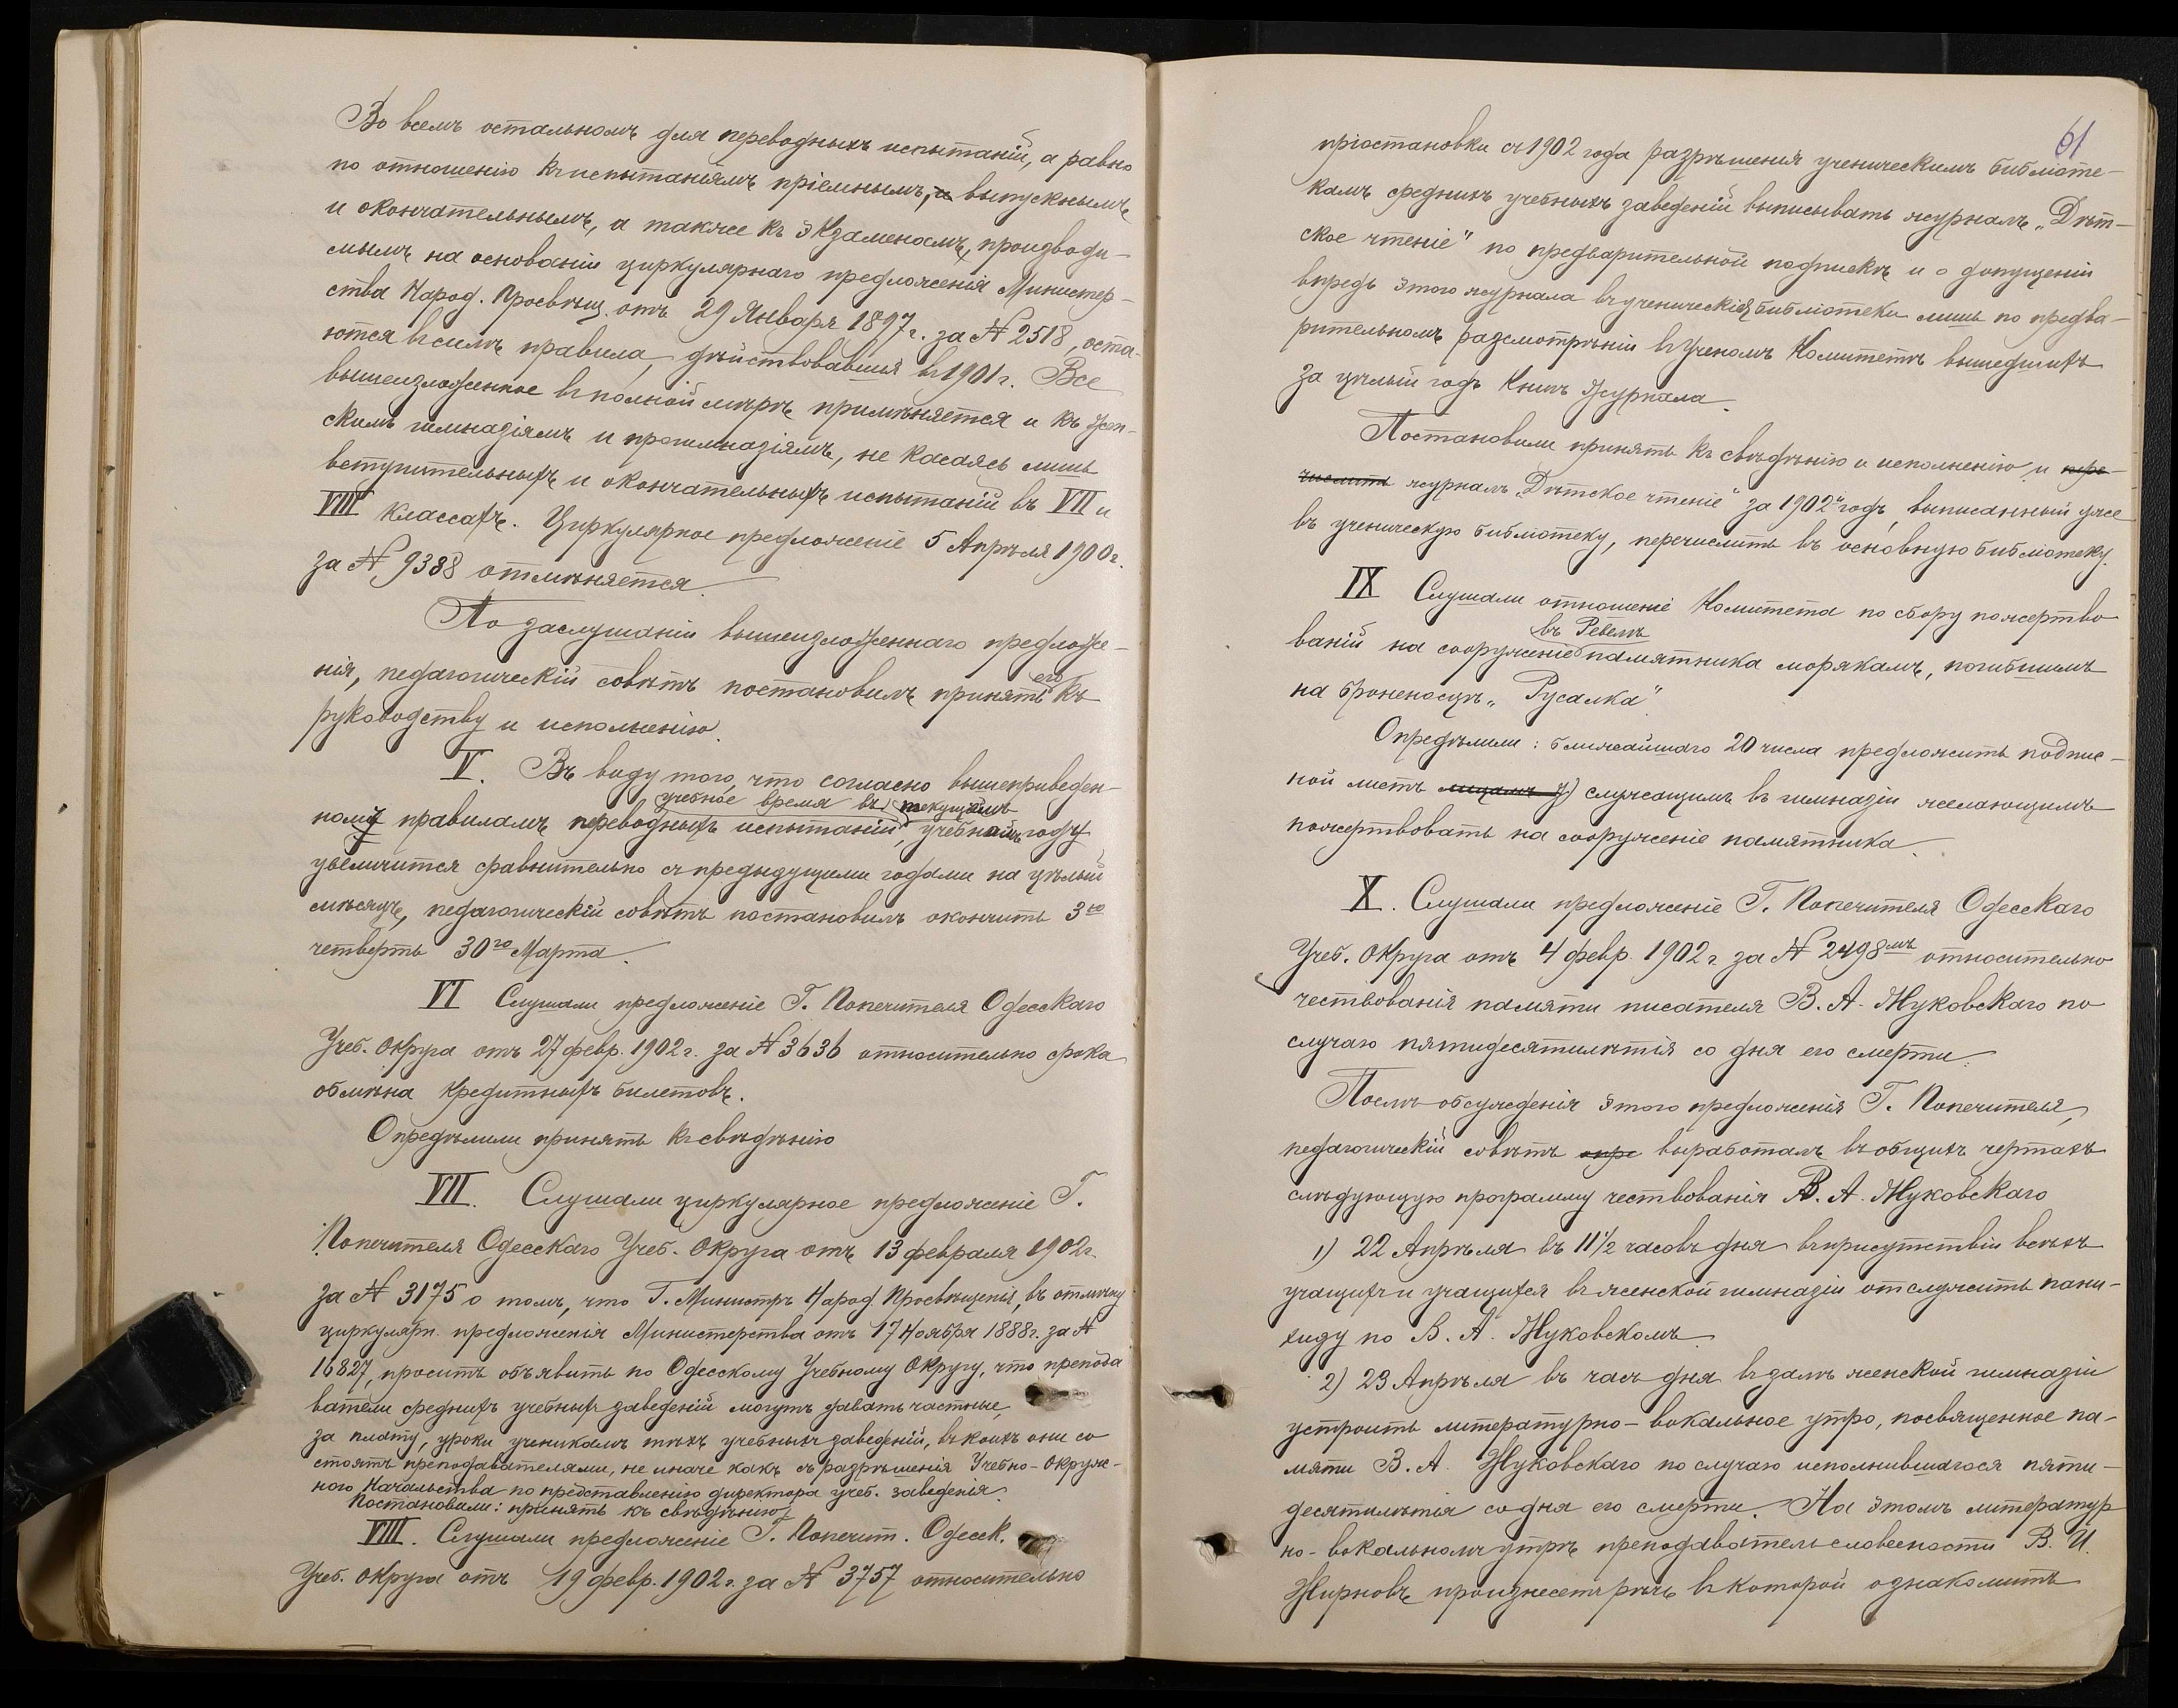 Во всемъ остальномъ для переводныхъ испытаній, а равно
по отношенію къ испытаніямъ пріемнымъ, и выпускнымъ
и окончательнымъ, а также къ экзаменамъ, производи-
мымъ на основаніи циркулярнаго предложенія Министер-
ства Народ. Просвѣщ. отъ 29 Января 1897 г. за № 2518, оста-
ются въ силѣ правила, дѣйствовавшія въ 1901 г. Все
вышеизложенное въ полной мѣрѣ примѣняется и къ жен-
скимъ гимназіямъ и прогимназіямъ, не касаясь лишь
вступительныхъ и окончательныхъ испытаній въ VII и
VIII классахъ. Циркулярное предложеніе 5 Апрѣля 1900 г.
за № 9388 отмѣняется.
По заслушаніи вышеизложеннаго предложе-
нія, педагогическій совѣтъ постановилъ принять его къ
руководству и исполненію.
V. Въ виду того, что согласно вышеприведен-
учебное время въ текущемъ
ному правиламъ переводныхъ испытаній, учебномъ году
увеличится сравнительно съ предыдущими годами на цѣлый
мѣсяцъ, педагогическій совѣтъ постановилъ окончить 3ю
четверть 30го Марта.
VI Слушали предложеніе Г. Попечителя Одесскаго
Учеб. Округа отъ 27 февр. 1902 г. за № 3636 относительно срока
обмѣна кредитныхъ билетовъ.
Опредѣлили принять къ свѣдѣнію
VII. Слушали циркулярное предложеніе Г.
Попечителя Одесскаго Учеб. Округа отъ 13 февраля 1902 г.
за № 3175 о томъ, что Г. Министръ Народ. Просвѣщенія, въ отмѣну
циркулярн. предложенія Министерства отъ 17 Ноября 1888 г. за №
16827, проситъ объявить по Одесскому Учебному Округу, что препода
ватели среднихъ учебныхъ заведеній могутъ давать частные,
за плату, уроки ученикамъ тѣхъ учебныхъ заведеній, въ коихъ они со
стоятъ преподавателями, не иначе какъ съ разрѣшенія Учебно-Окруж-
ного Начальства по представленію директора учеб. заведенія.
Постановили: принять къ свѣдѣнію
VIII. Слушали предложеніе Г. Попечит. Одесск.
Учеб. Округа отъ 19 февр. 1902 г. за № 3757 относительно
61
пріостановки съ 1902 года разрѣшенія ученическимъ библіоте-
камъ среднихъ учебныхъ заведеній выписывать журналъ „Дѣт-
ское чтеніе" по предварительной подпискѣ и о допущеніи
впредь этого журнала въ ученическія библіотеки лишь по предва-
рительномъ разсмотрѣніи въ Ученомъ Комитетѣ вышедшихъ
за цѣлый годъ книгъ журнала.
Постановили принять къ свѣдѣнію и исполненію и пере-
числить журналъ „Дѣтское чтеніе" за 1902й годъ, выписанный уже
въ ученическую библіотеку, перечислить въ основную библіотеку.
IX Слушали отношеніе Комитета по сбору пожертво
въ Ревелѣ
ваній на сооруженіе памятника морякамъ, погибшимъ
на броненосцѣ „Русалка"
Опредѣлили: ближайшаго 20 числа предложить подпис-
ной листъ лицамъ служащимъ въ гимназіи желающимъ
пожертвовать на сооруженіе памятника.
X. Слушали предложеніе Г. Попечителя Одесскаго
Учеб. Округа отъ 4 февр. 1902 г. за № 2498мъ относительно
чествованія памяти писателя В. А. Жуковскаго по
случаю пятидесятилѣтія со дня его смерти.
Послѣ обсужденія этого предложенія Г. Попечителя,
педагогическій совѣтъ опре выработалъ въ общихъ чертахъ
слѣдующую программу чествованія В. А. Жуковскаго
1) 22 Апрѣля въ 11 1/2 часовъ дня въ присутствіи всѣхъ
учащихъ и учащихся въ женской гимназіи отслужить пани-
хиду по В. А. Жуковскомъ.
2) 23 Апрѣля въ часъ дня въ залѣ женской гимназіи
устроить литературно-вокальное утро, посвященное па-
мяти В. А. Жуковскаго по случаю исполнившагося пяти-
десятилѣтія со дня его смерти. На этомъ литератур
но-вокальномъ утрѣ преподаватель словесности В. И.
Жирновъ произнесетъ рѣчь въ которой ознакомитъ